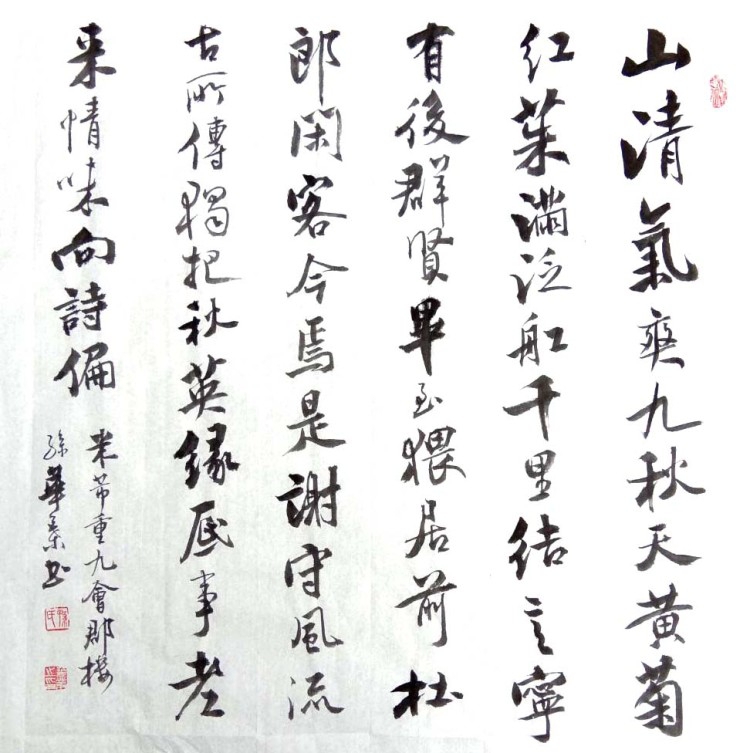 山清氣爽九秋天黄菊
红茱滿泛船千里结言寧
有後群賢畢至猥居前杜
郎閑客今焉是謝守風流
古所傳獨把秋英緣底事老
来情味向詩偏
米芾重九會郡楼
孫華书